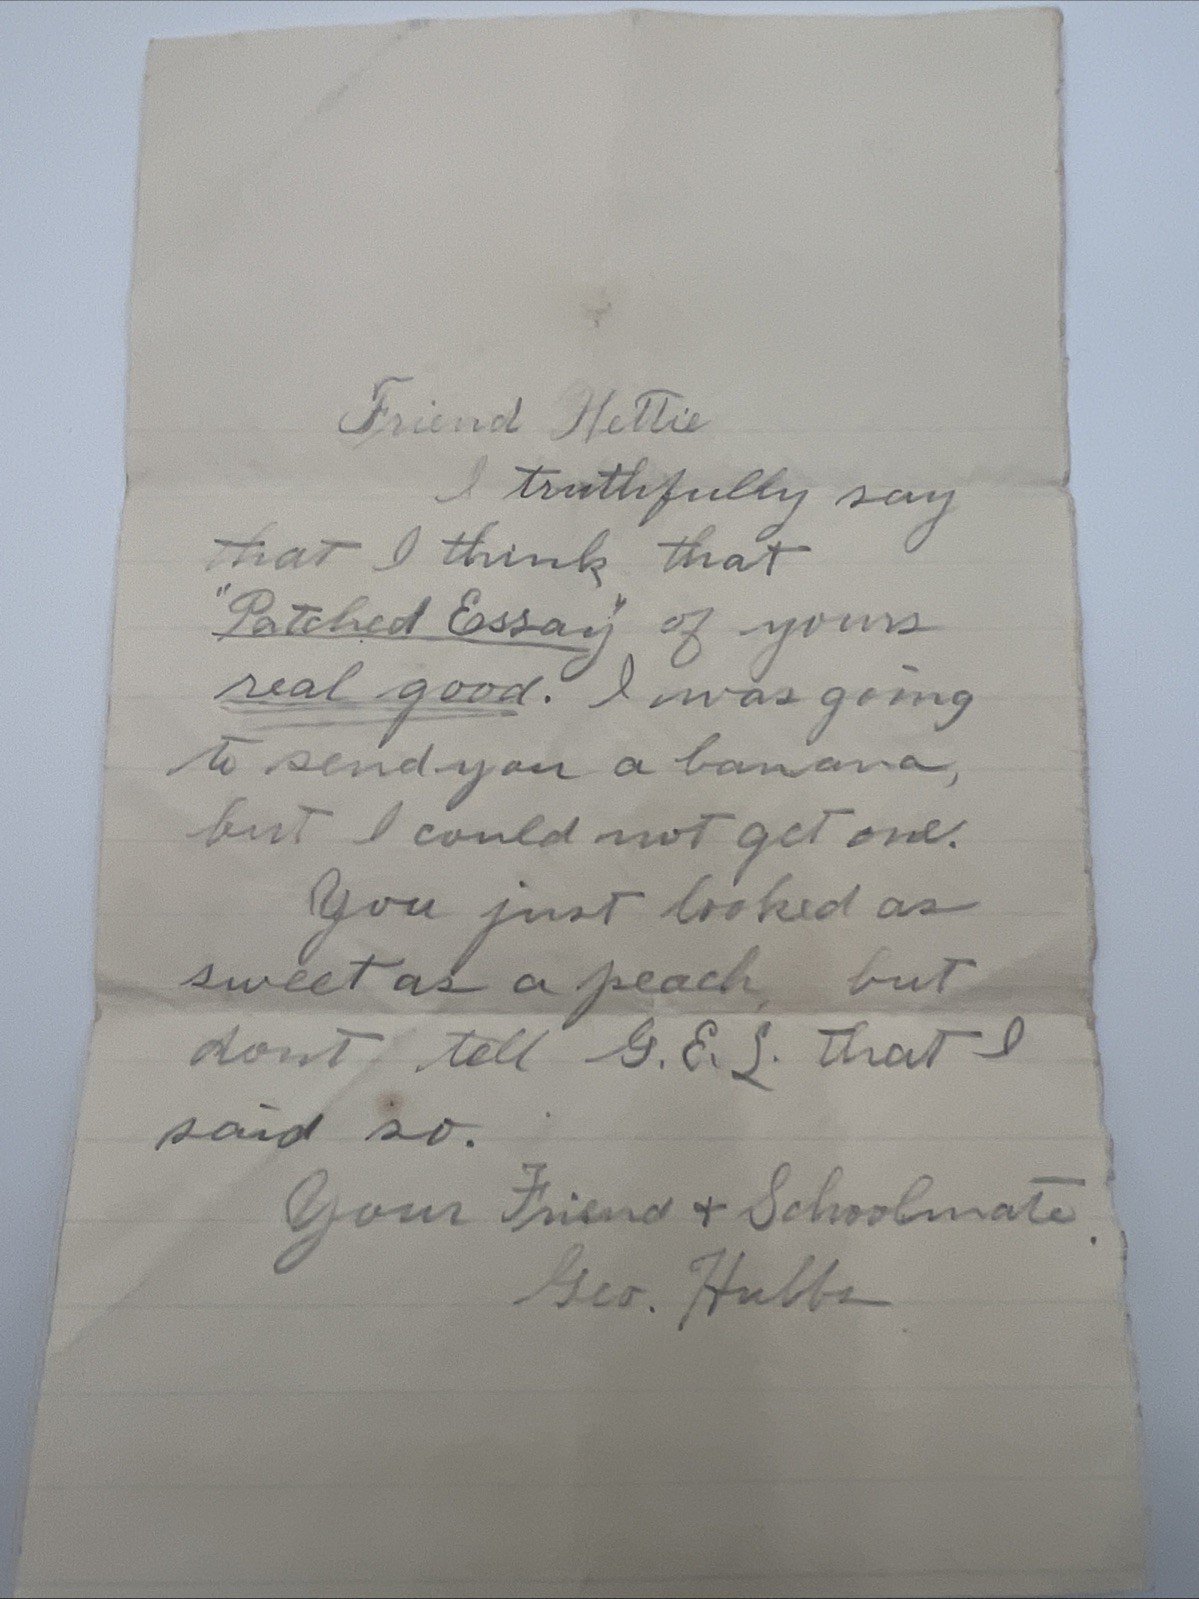 Friend Hettie
I truthfully say
that I think that
"Patched Essay" of yours
real good. I was going
to send you a banana,
but I could not get one.
You just looked as
sweet as a peach, but
dont tell G. E. L. that I
said so.
Your Friend & Schoolmate.
Geo. Hubbs